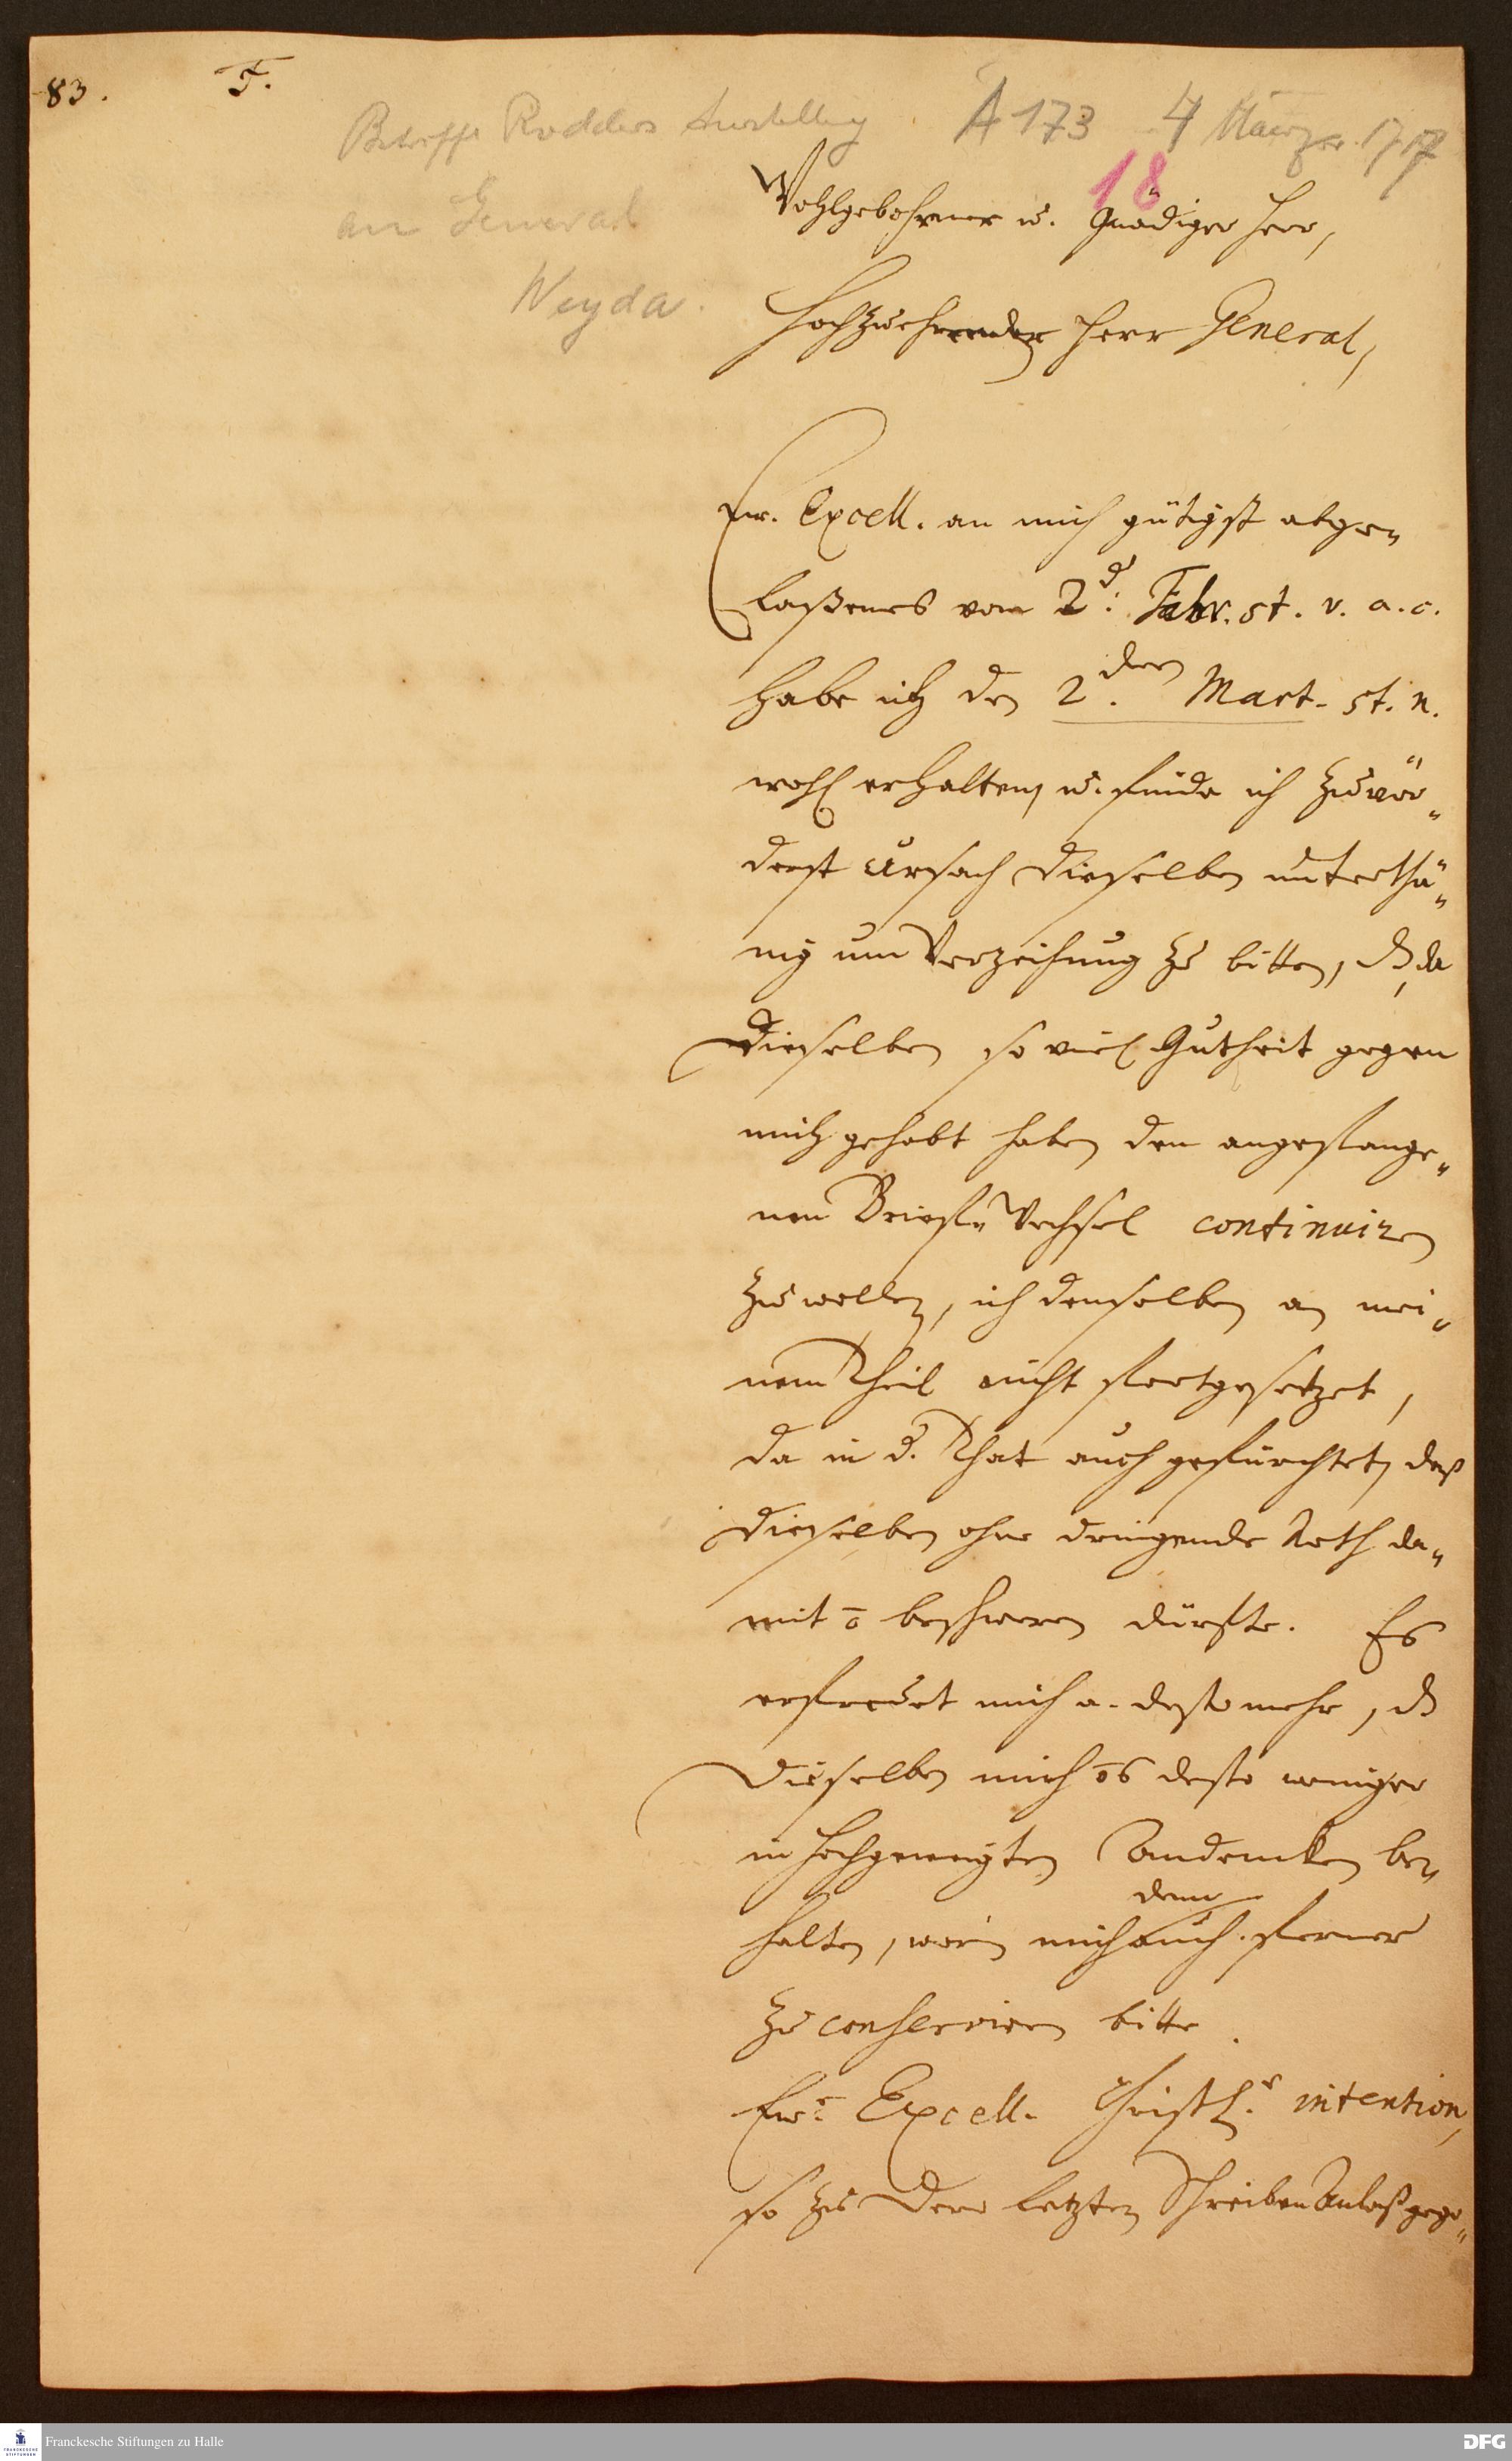 83. F.
Betrifft Rodders Anstellung A 173 4 März 1717
18
an General
Weyda.
Wohlgebohrner u. Gnädiger Herr,
Hochzuehrender Herr General,
Ew. Excell. an mich gütigst abge„
laßenes vom 2d: Febr. st. v. a. c.
habe ich den 2.den Mart. st. n.
wohl erhalten, u. finde ich zuvör„
derst Ursach dieselben unterthä„
nig um Verzeihung zu bitten, dß, da
dieselben so viel Gutheit gegen
mich gehabt haben den angefange„
nen Brief„Wechsel continuiren
zu wollen, ich denselben an mei„
nem Theil nicht fortgesetzet,
da in d. That auch gefürchtet, daß
dieselben ohne dringende Noth da„
mit ō beschweren dürfte. Es
erfreuet mich a. desto mehr, dß
dieselben mich ōs desto weniger
in hochgeneigten Andencken be„
halten, worin mich auch denn ferner
zu conserviren bitte.
Ew. Excell. Christl.r intention,
so zu Dero letzten Schreiben Anlaß gege„
Franckesche Stiftungen zu Halle
DFG